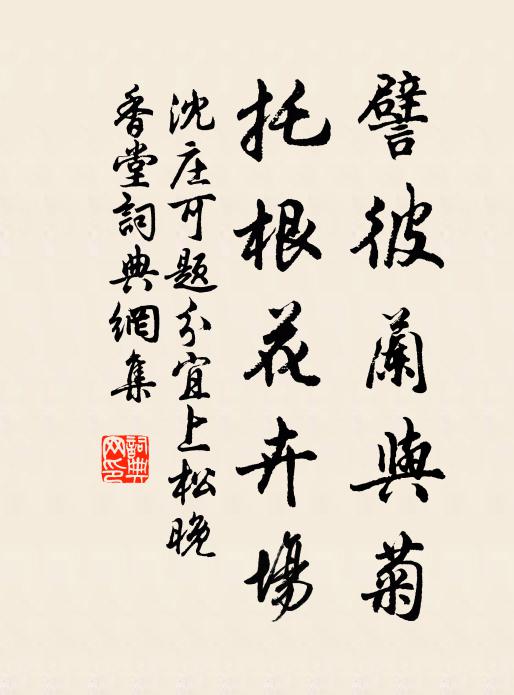 譬彼蘭與菊
托根花卉場
沈庄可題分宜上松晚
香堂詞典網集
詞典网印